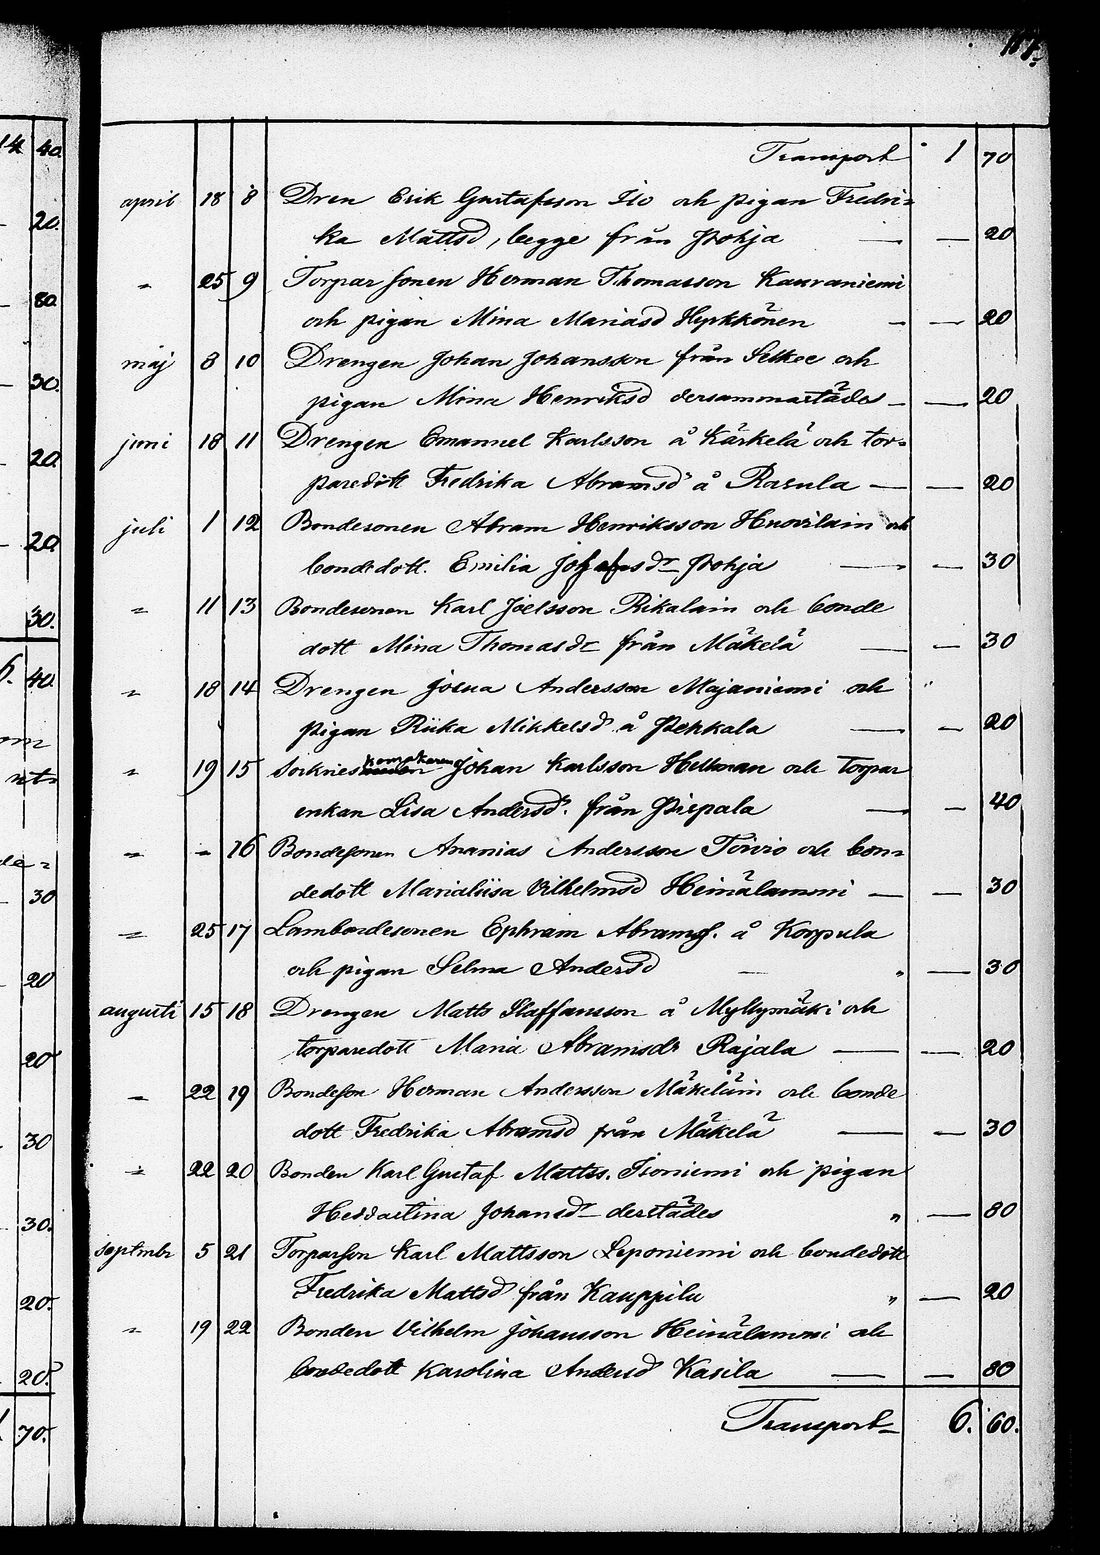 14 40
20.
80.
30.
20.
20.
30.
6. 40.
om
30
20
20
30
30.
20.
20.
70.
Transport 1 70
april 18 8 Dren Erik Gustafsson Iso och pigan Fredri-
ka Mattsd, begge från Pohja — — 20
" 25 9 Torparsonen Herman Thomasson Kauraniemi
och pigan Mina Mariasd Hyrkkönen — — 20
maj 8 10 Drengen Johan Johansson från Selkee och
pigan Mina Henriksd dersammastädes — — 20
juni 18 11 Drengen Emanuel Karlsson å Kärkelä och tor-
paredott Fredrika Abramsd å Rasula — — 20
juli 1 12 Bondesonen Abram Henriksson Huovilain och
bondedott. Emilia Pohja — — 30
" 11 13 Bondesonen Karl Joelsson Rikalain och bonde
dott Mina Thomasdr från Mäkelä — — 30
" 18 14 Drengen Josua Andersson Majaniemi och
pigan Riika Mikkelsd å Pekkala — — 20
" 19 15 Sockne Johan Karlsson Hellman och Torpar
enkan Lisa Andersd. från Piepala — — 40
" - 16 Bondesonen Ananias Andersson Toivio och bon-
dedott Marialiisa Vilhelmsd Heinälammi — — 30
" 25 17 Lambondesonen Ephraim Abramss. å Korpula
och pigan Selma Andersd — " — 30
augusti 15 18 Drengen Matts Staffansson å Myllymäki och
torparedott Maria Abramsdr Rajala — — 20
" 22 19 Bondeson Herman Andersson Mäkeläin och bonde
dott Fredrika Abramsd från Mäkelä — — 30
" 22 20 Bonden Karl Gustaf Mattss. Isoniemi och pigan
Heddastina Johansd derstädes " — 80
septmbr 5 21 Torparson Karl Mattsson Leponiemi och bondedott
Fredrika Mattsd från Kauppila " — 20
" 19 22 Bonden Vilhelm Johansson Heinälammi och
bondedott Karolina Andersd Kasila — — 80
Transport 6. 60.